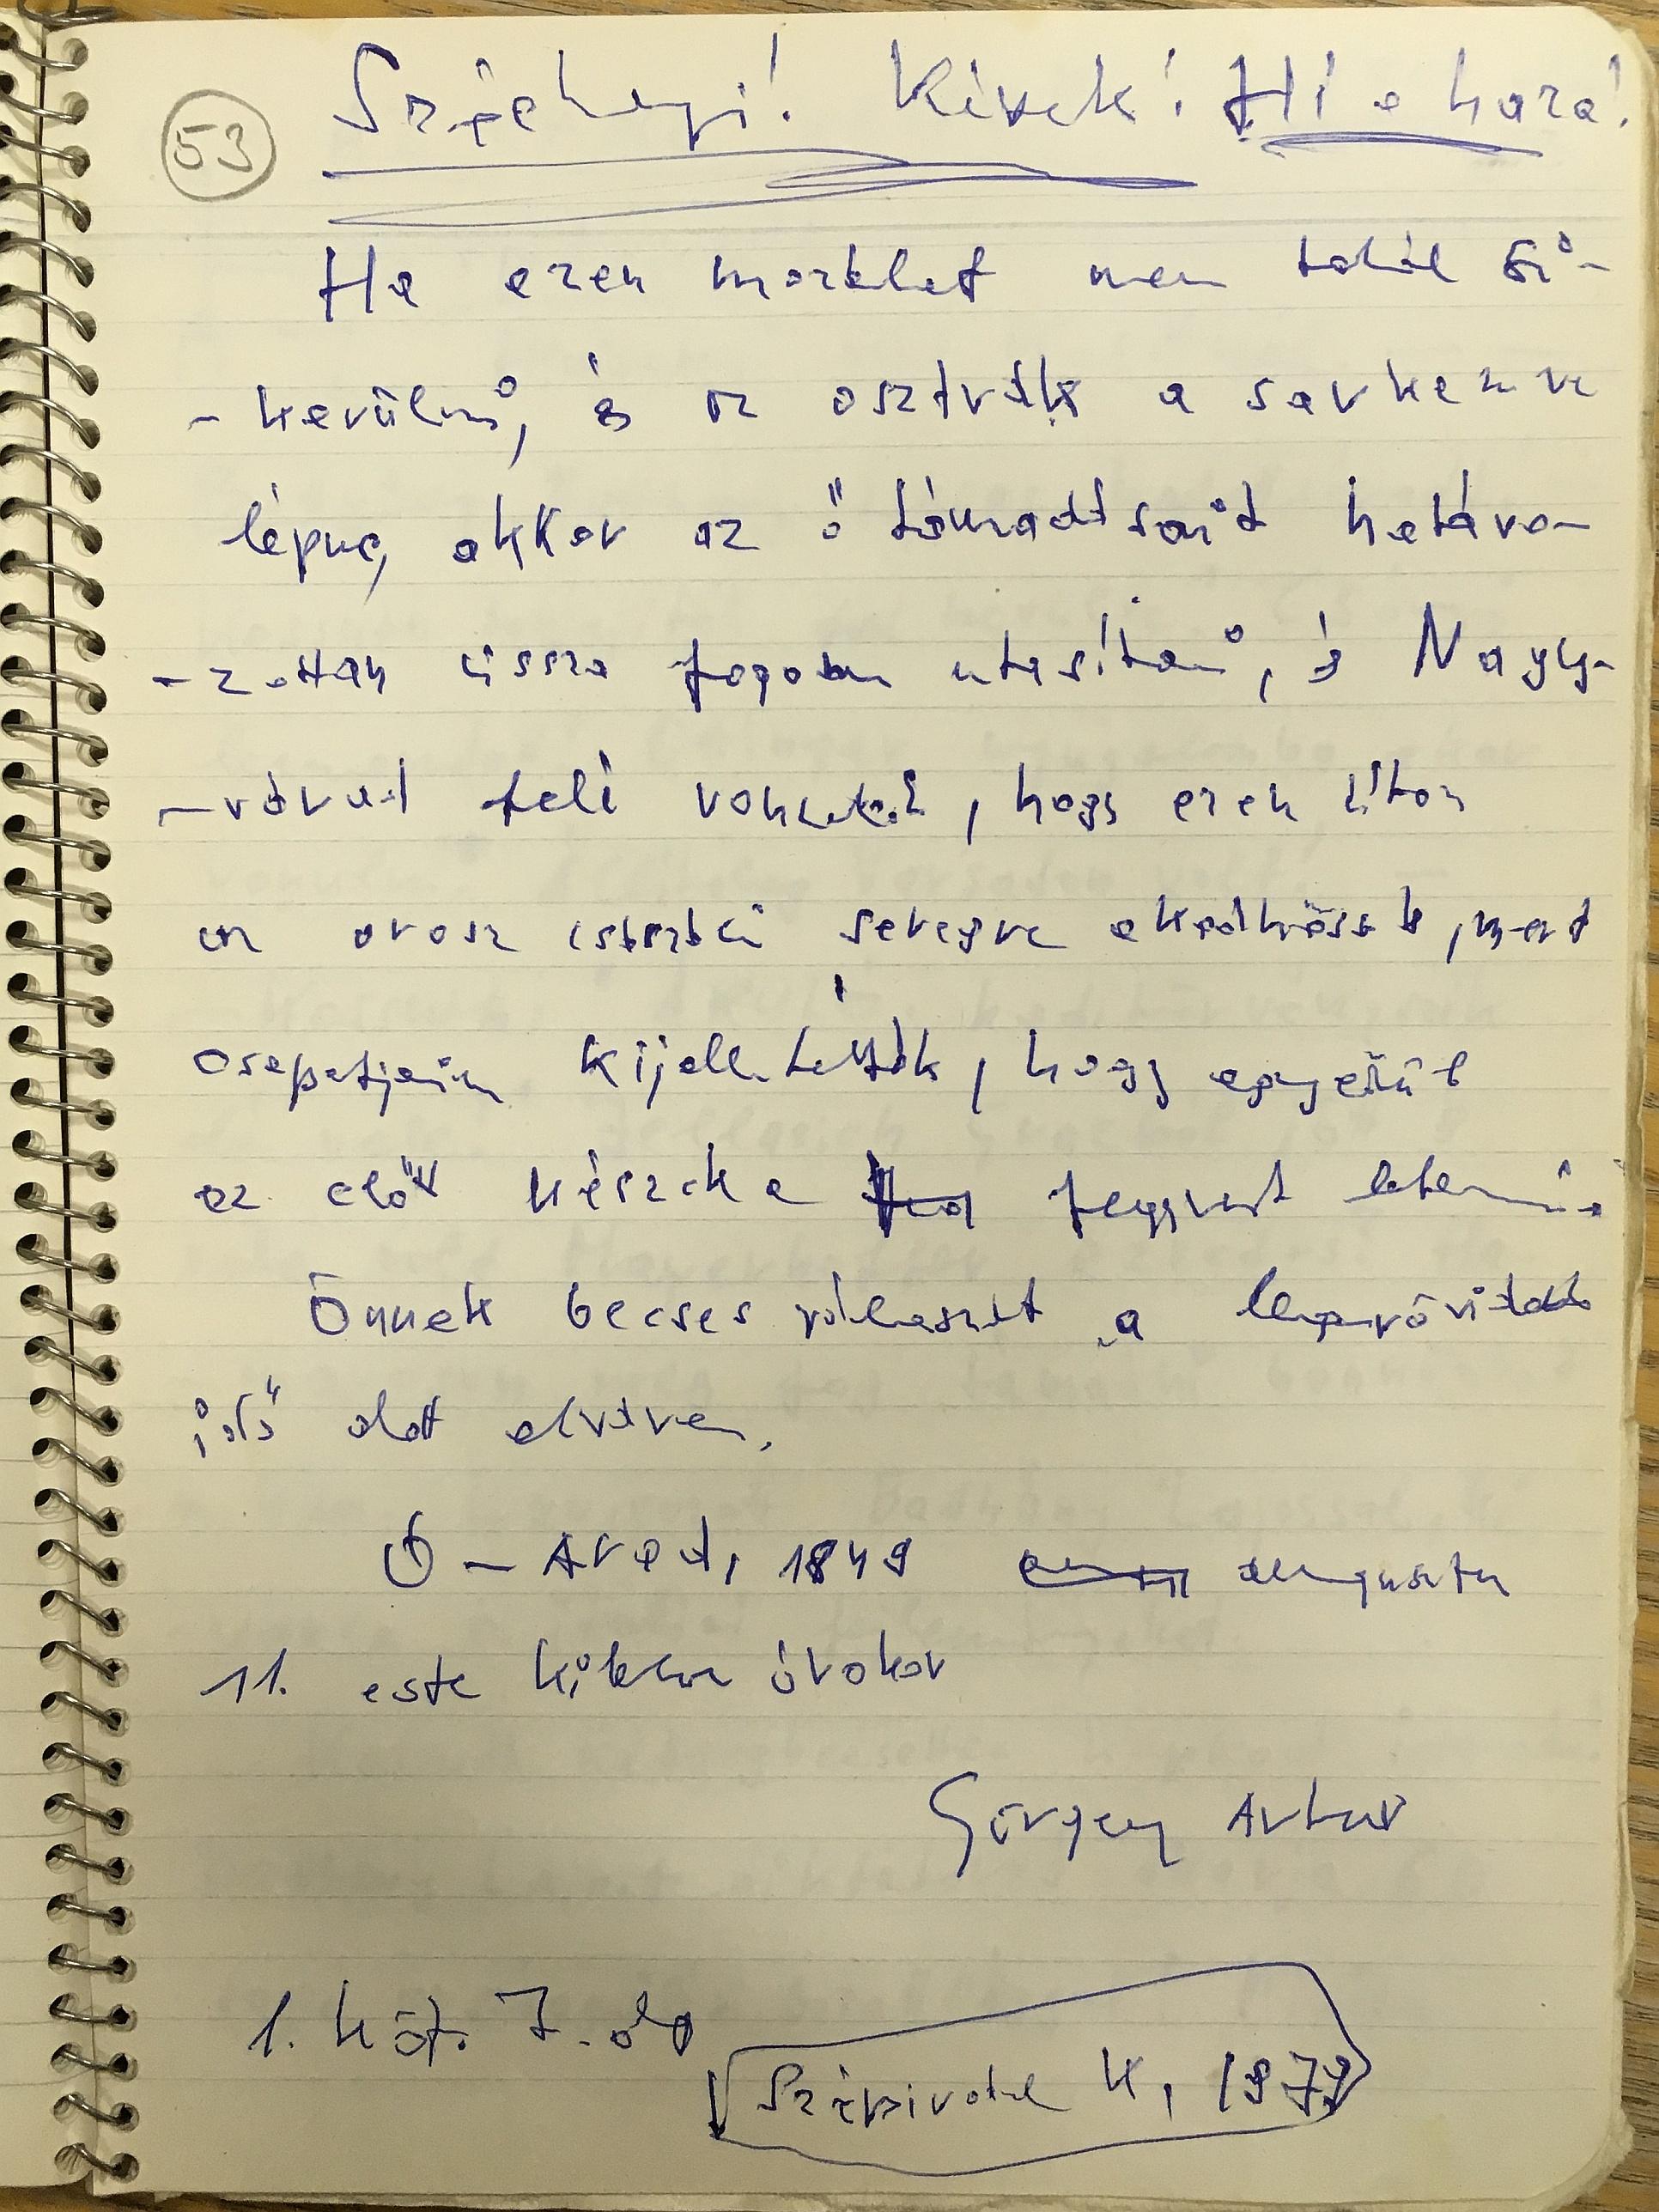 53
Széchenyi! Kincsek! Hí a haza!
Ha ezen mozdulat nem talál si-
- kerülni, és az osztrák a savkemre
lépne, akkor az ő támadásait határo-
- zottan vissza fogom utasítani, és Nagy-
- várad felé vonulok, hogy ezen úton
az orosz császári seregre akadhassak, mert
csapatjaim kijelentették, hogy egyedül
az előtt készek a fegyvert letenni.
Önnek becses válaszát a legrövidebb
idő alatt elvárva.
Ó - Arad, 1849 augusztus
11. este kilenc órakor
Görgey Artur
1. köt. 7. old
Szépirodal K, 1979